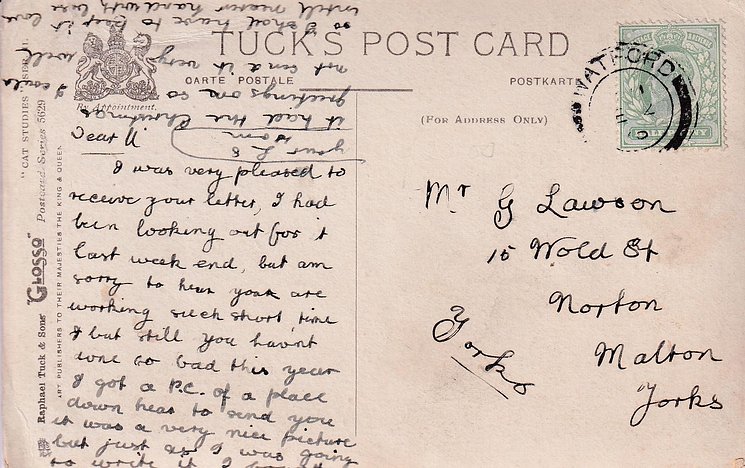 TUCK'S POST CARD
CARTE POSTALE
POSTKARTE
By Appointment.
(FOR ADDRESS ONLY)
"CAT STUDIES" SER
"GLOSSO" Postcard Series 5629
Raphael Tuck & Sons'
ART PUBLISHERS TO THEIR MAJESTIES THE KING & QUEEN
WATFORD
Dear
I was very pleased to
receive your letter, I had
been looking out for it
last week end, but am
sorry to hear your are
working such short time
I but still you havnt
done so bad this year
I got a P.C. of a place
down hear to send you
it was a very nice picture
but just as I was going
to write it I
it had the Christmas
greetings on so I could
not send it very well
so I shall have to keep it
until nearer hand with best love
from
your
Mr G Lawson
15 Wold St
Norton
Malton
Yorks
Yorks